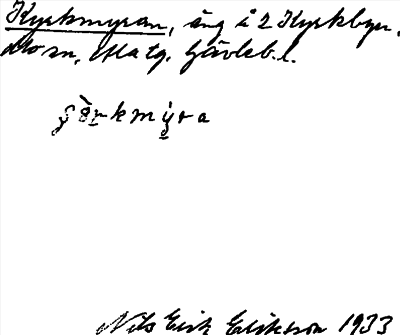 Kyrkmyran, äng å 2 Kyrkbyn.
Mo sn, Ala tg. Gävleb. l.
çö̀rkmýra
Nils Erik Eriksson 1933